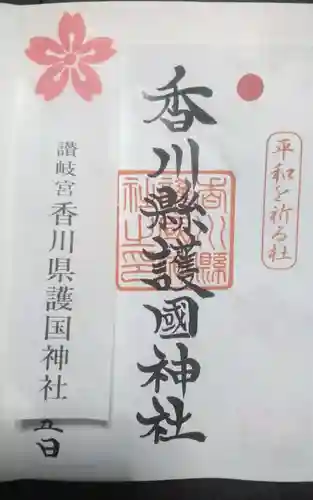 平和を祈る社
香川縣護國神社
香川縣護國神社之印
讃岐宮 香川県護国神社
五日